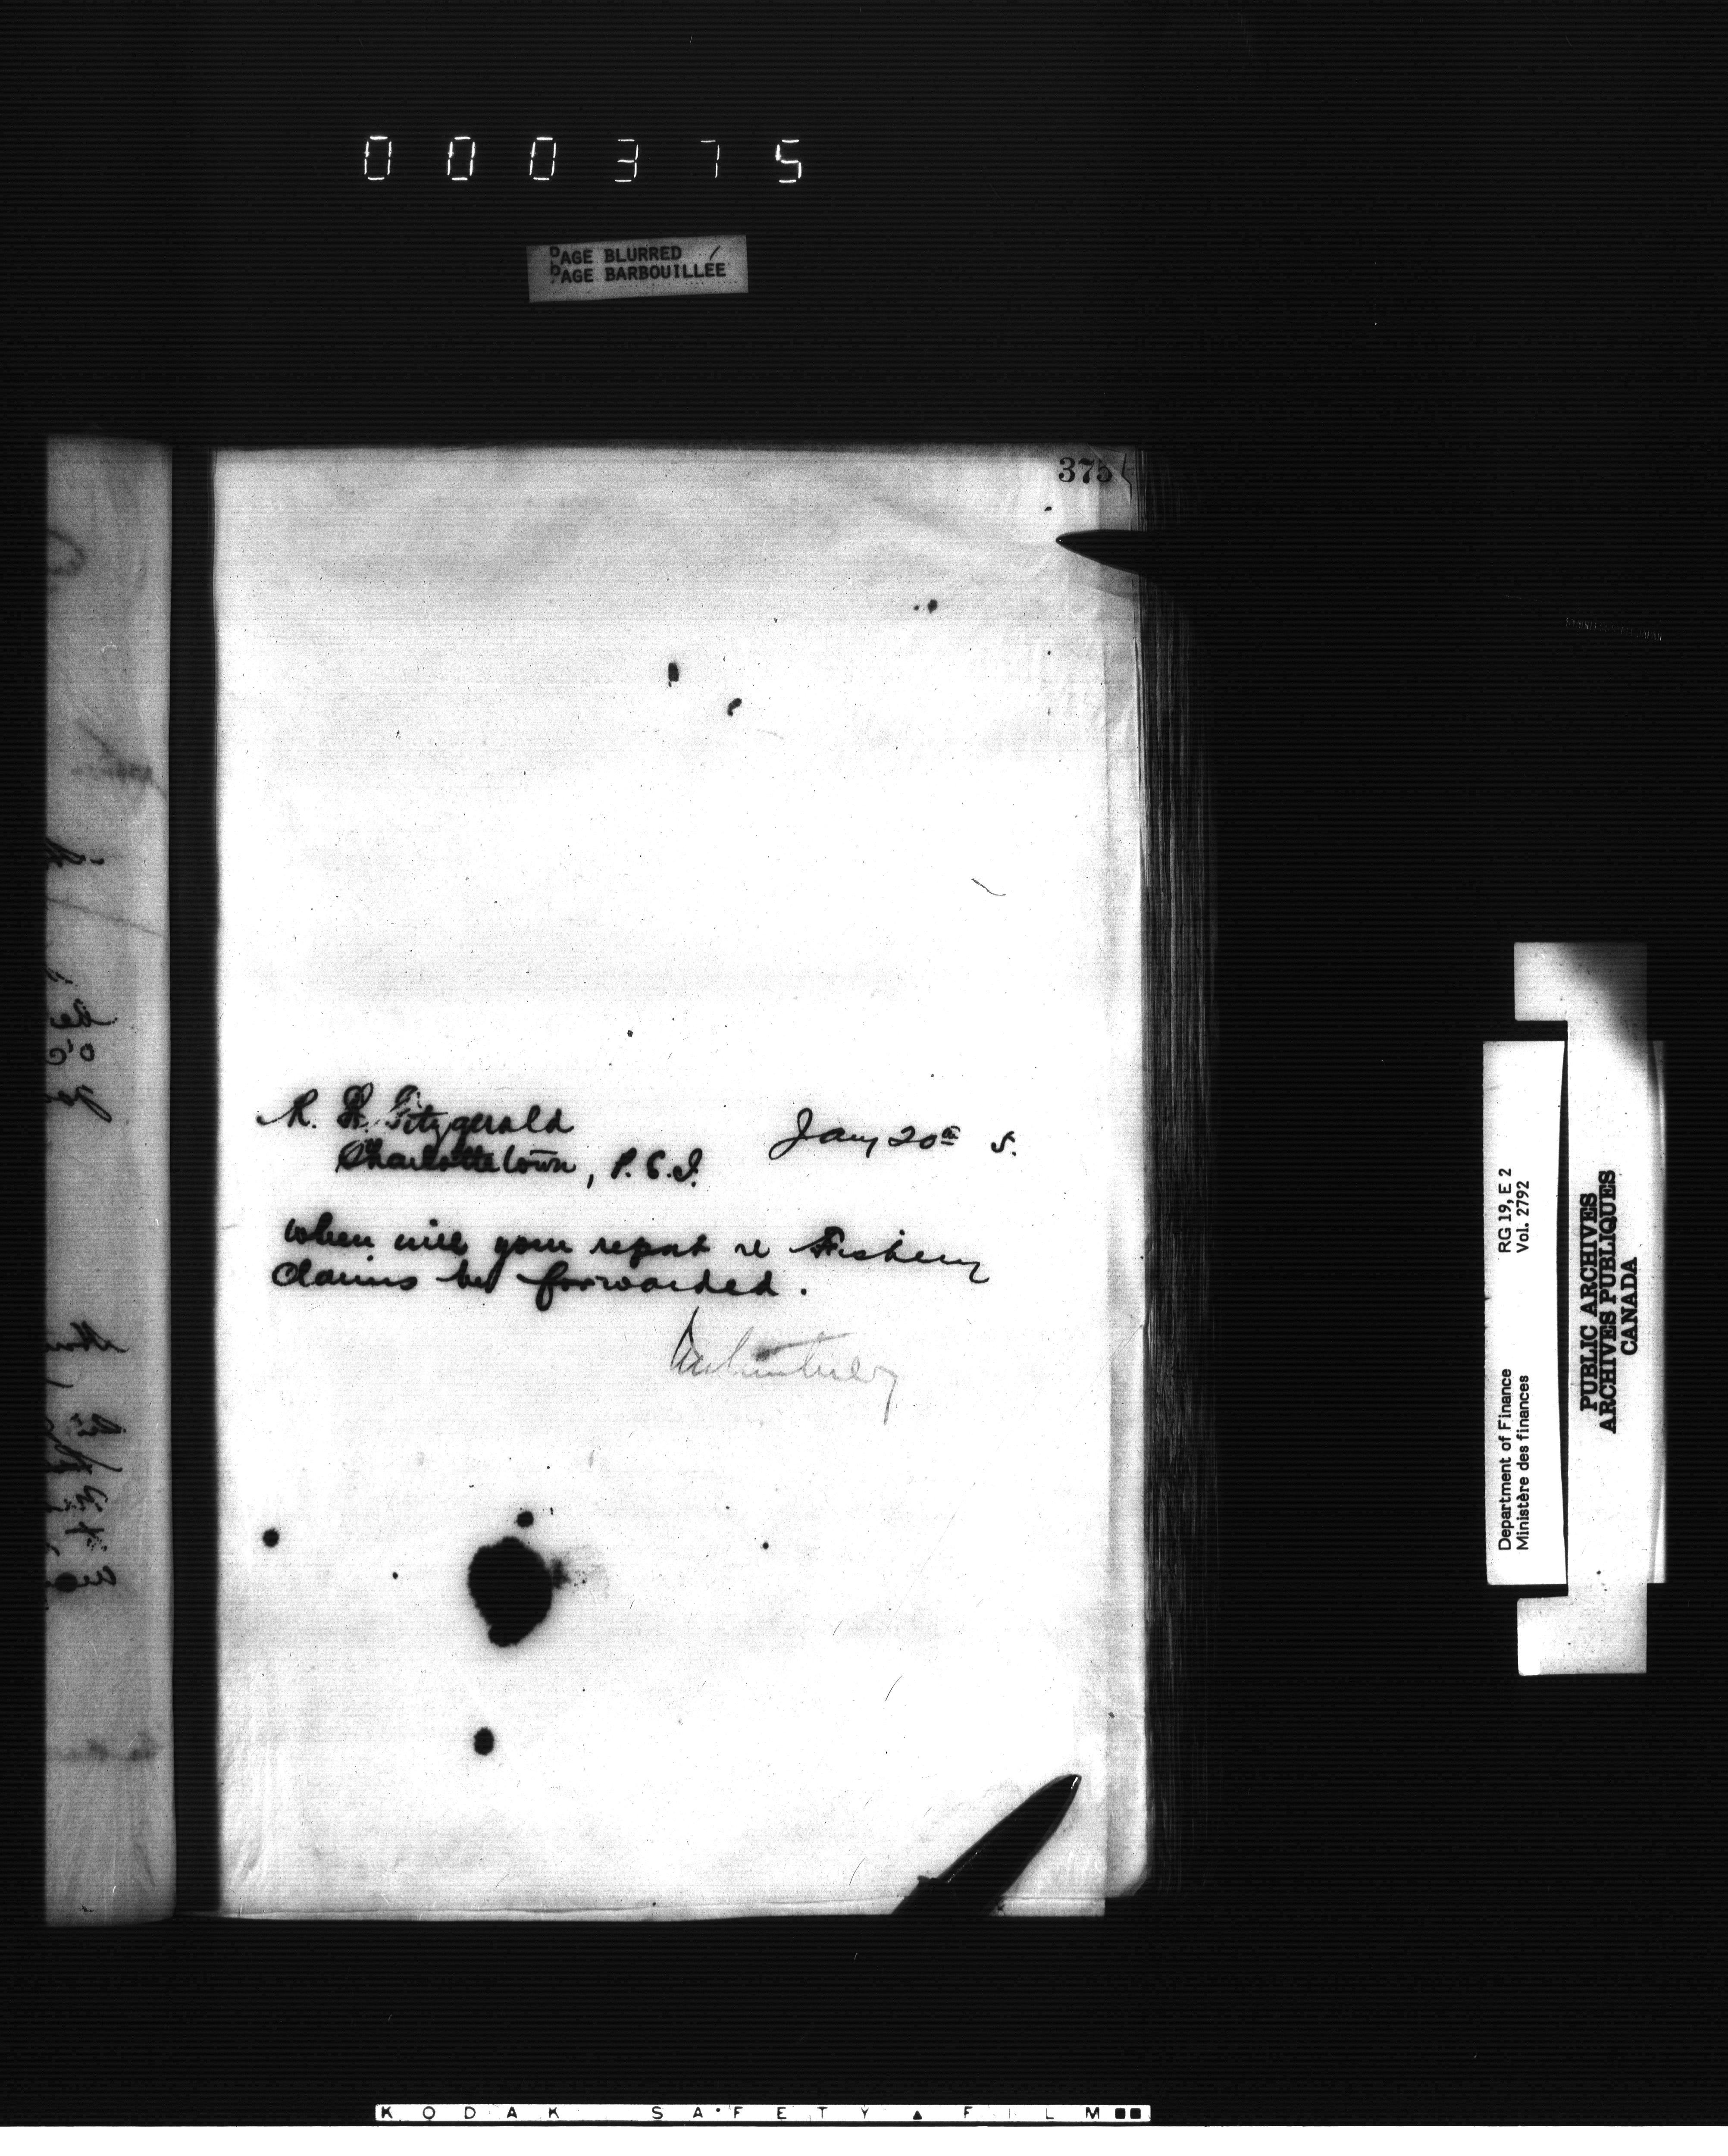 000375
PAGE BLURRED
PAGE BARBOUILLÉE
375
R. R. Fitzgerald
Charlottetown, P.E.I.
Jany 20th 5.
When will your report re Fishery
Claims be forwarded.
RG 19, E 2
Vol. 2792
Department of Finance
Ministère des finances
PUBLIC ARCHIVES
ARCHIVES PUBLIQUES
CANADA
KODAK SAFETY FILM